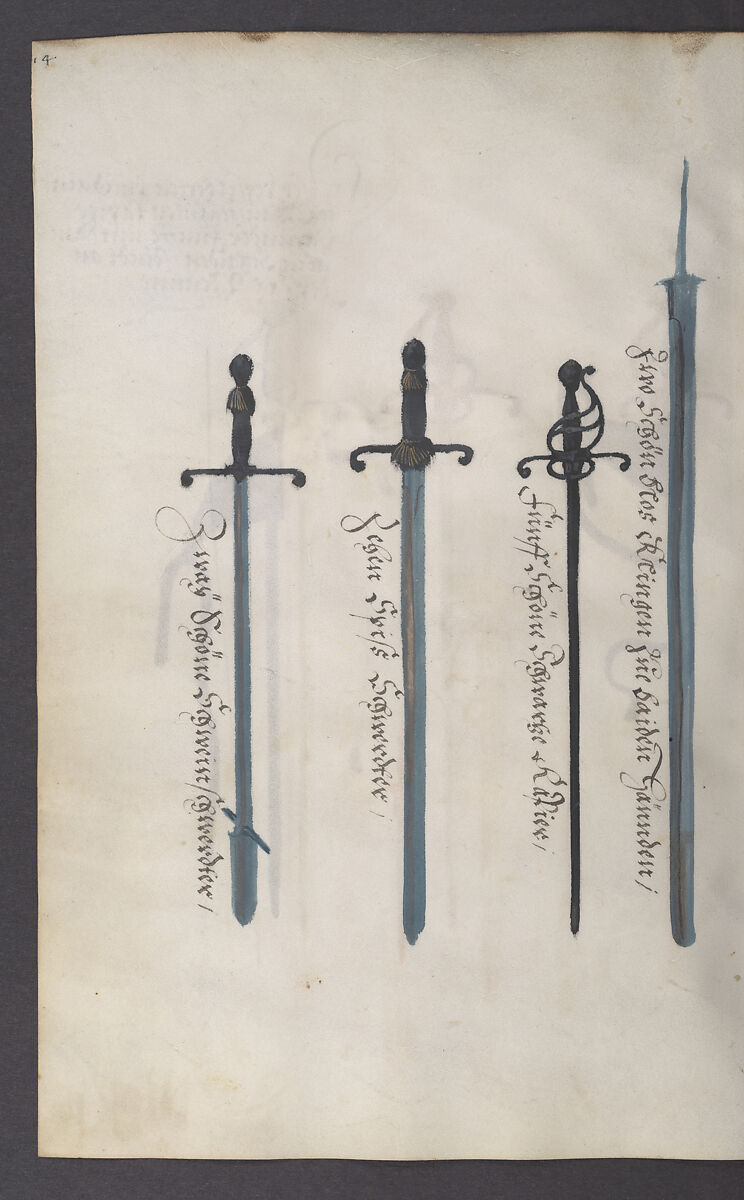 14
Zway Schöne Schweinschwerdter/
Zehen Spiß Schwerdter/
Fünff Schöne Schwartze Rapier/
Zwo Schön Klingen Zue baiden Hännden/